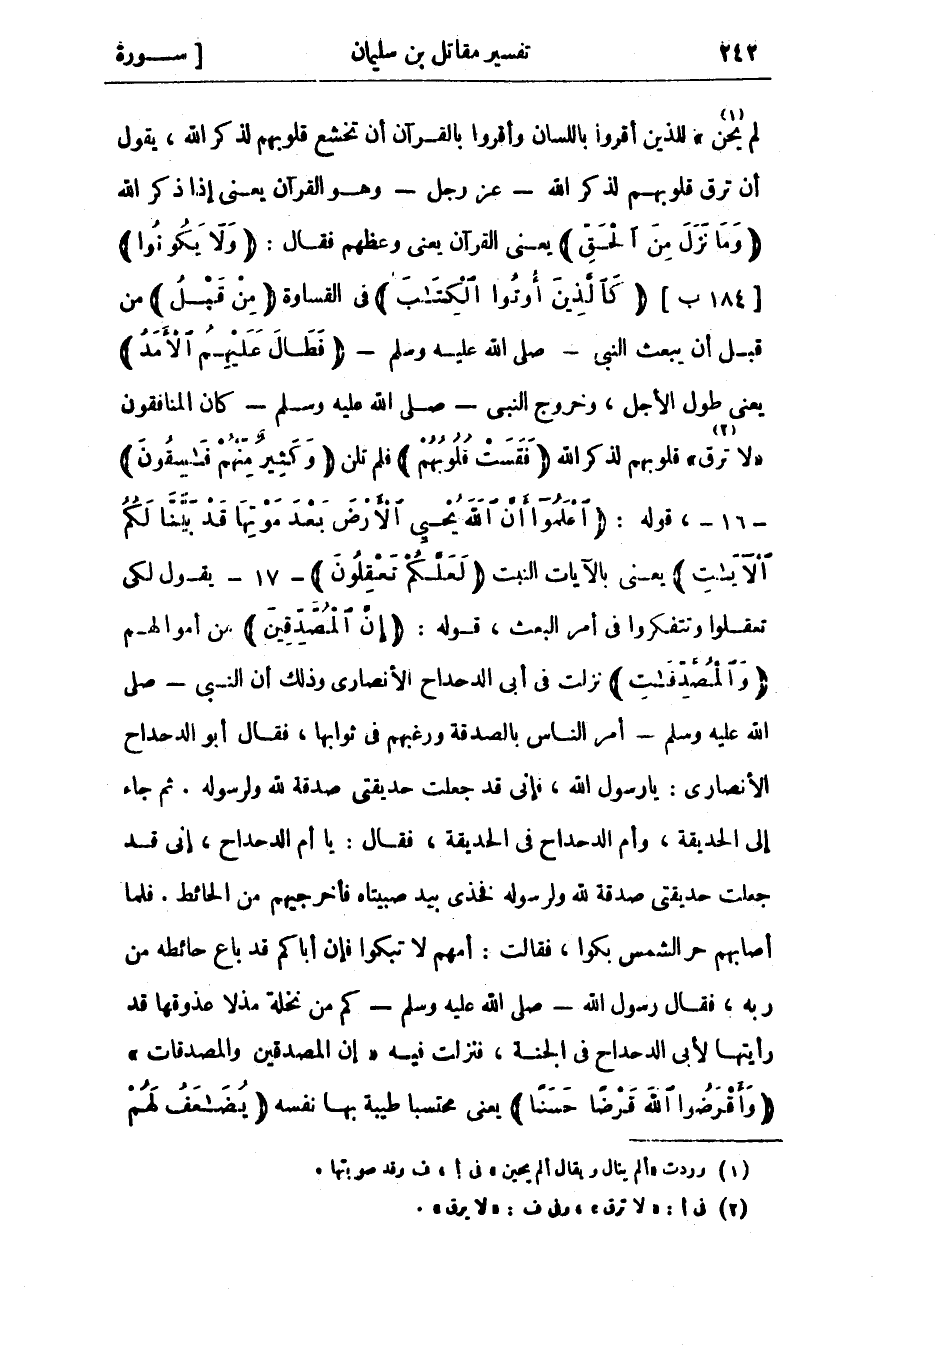 ٢٤٢ تفسير مقاتل بن سليمان [ ســورة
لم يحن(١) » للذين أقروا باللسان وأقروا بالقرآن أن تخشع قلوبهم لذكر الله ، يقول
أن ترق قلوبهم لذكر الله – عز رجل – وهو القرآن يعنى إذا ذكر الله
﴿ وَمَا نَزَلَ مِنَ ٱلْحَقِّ ﴾ يعنى القرآن يعنى وعظهم فقال : ﴿ وَلَا يَكُونُوا ﴾
[ ١٨٤ ب ] ﴿ كَٱلَّذِينَ أُوتُوا ٱلْكِتَٰبَ ﴾ فى القساوة ﴿ مِنْ قَبْلُ ﴾ من
قبل أن يبعث النبى – صلى الله عليه وسلم – ﴿ فَطَالَ عَلَيْهِمُ ٱلْأَمَدُ ﴾
يعنى طول الأجل ، وخروج النبى – صلى الله عليه وسلم – كان المنافقون
«لا ترق»(٢) قلوبهم لذكر الله ﴿ فَقَسَتْ قُلُوبُهُمْ ﴾ فلم تلن ﴿ وَكَثِيرٌ مِنْهُمْ فَٰسِقُونَ ﴾
– ١٦ – ، قوله : ﴿ ٱعْلَمُوٓا أَنَّ ٱللَّهَ يُحْيِي ٱلْأَرْضَ بَعْدَ مَوْتِهَا قَدْ بَيَّنَّا لَكُمُ
ٱلْآيَٰتِ ﴾ يعنى بالآيات النبت ﴿ لَعَلَّكُمْ تَعْقِلُونَ ﴾ – ١٧ – يقول لكى
تعقلوا وتتفكروا فى أمر البعث ، قوله : ﴿ إِنَّ ٱلْمُصَّدِّقِينَ ﴾ من أموالهم
﴿ وَٱلْمُصَّدِّقَٰتِ ﴾ نزلت فى أبى الدحداح الأنصارى وذلك أن النبى – صلى
الله عليه وسلم – أمر الناس بالصدقة ورغبهم فى ثوابها ، فقال أبو الدحداح
الأنصارى : يارسول الله ، فإنى قد جعلت حديقتى صدقة لله ولرسوله . ثم جاء
إلى الحديقة ، وأم الدحداح فى الحديقة ، فقال : يا أم الدحداح ، إنى قد
جعلت حديقتى صدقة لله ولرسوله فخذى بيد صبيتاه فأخرجيهم من الحائط . فلما
أصابهم حر الشمس بكوا ، فقالت : أمهم لا تبكوا فإن أباكم قد باع حائطه من
ربه ، فقال رسول الله – صلى الله عليه وسلم – كم من نخلة مذلا عذوقها قد
رأيتها لأبى الدحداح فى الجنة ، فنزلت فيه « إن المصدقين والمصدقات »
﴿ وَأَقْرَضُوا ٱللَّهَ قَرْضًا حَسَنًا ﴾ يعنى محتسبا طيبة بها نفسه ﴿ يُضَٰعَفُ لَهُمْ
(١) وردت «ألم ينال ويقال ألم يحين» فى أ ، ف وقد صوبتها .
(٢) فى أ : «لا ترق» ، وفى ف : «لا يرق» .